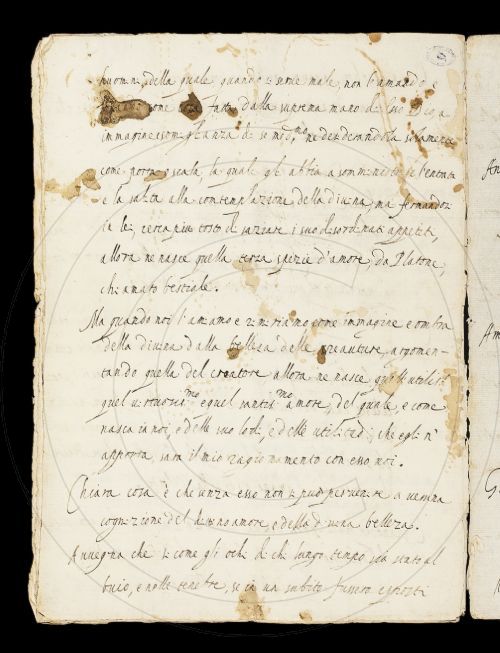 huomini, della quale quando si serve male, non l'amando e
come cosa fatta dalla suprema mano di suo Dio, a
immagine e somiglianza di se med.mo ne desiderandola solamente
come porta e scala, la quale gli abbia a somministrare l'entrata
e la salita alla contemplazione della divina, ma fermandosi
in lei, cerca più tosto di saziare i suoi disordinati appetiti,
allora ne nasce quella terza spezie d'amore, da Platone,
chiamato bestiale.
Ma quando noi l'amiamo e rimiriamo come immagine e ombra
della divina dalla bellezza delle creauture, argomen-
tando quella del creatore allora ne nasce quell'utiliss.
quel virtuosiss.mo e quel santiss.mo amore, del quale, e come
nasca in noi, e delle sue lodi, e delle utilitadi, che egli n'
apporta sarà il mio ragionamento con esso noi.
Chiara cosa è che senza esso non si può pervenire a veruna
cognizione del divino amore, e della divina bellezza.
Avvegna che si come gli ochi di chi lungo tempo sia stato al
buio, e nelle tenebre, se in un subito fussero esposti
An
Am